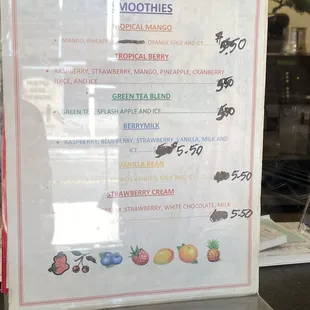 SMOOTHIES
TROPICAL MANGO
MANGO, ORANGE JUICE AND ICE $5.50
TROPICAL BERRY
RASPBERRY, STRAWBERRY, MANGO, PINEAPPLE, CRANBERRY
JUICE, AND ICE 5.50
GREEN TEA BLEND
GREEN TEA, SPLASH APPLE AND ICE 5.50
BERRYMILK
RASPBERRY, BLUEBERRY, STRAWBERRY, VANILLA, MILK AND
ICE 5.50
VANILLA BEAN
MILK AND ICE 5.50
STRAWBERRY CREAM
STRAWBERRY, WHITE CHOCOLATE, MILK 5.50